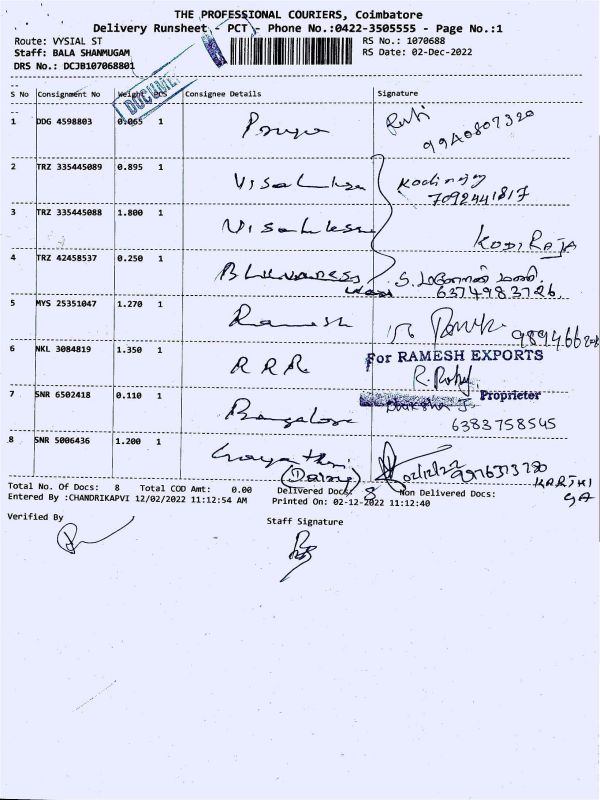 THE PROFESSIONAL COURIERS, Coimbatore
Delivery Runsheet - PCT - Phone No.:0422-3505555 - Page No.:1
Route: VYSIAL ST
RS No.: 1070688
Staff: BALA SHANMUGAM
RS Date: 02-Dec-2022
DRS No.: DCJB107068801
S No Consignment No Weight PCS Consignee Details Signature
1 DDG 4598803 0.065 1
9940807320
2 TRZ 335445089 0.895 1
7092441817
3 TRZ 335445088 1.800 1
KODI RAJA
4 TRZ 42458537 0.250 1
6374983726
5 MYS 25351047 1.270 1 Ramesh
6 NKL 3084819 1.350 1 RRR
For RAMESH EXPORTS
Proprietor
7 SNR 6502418 0.110 1 Bangalore
6383758545
8 SNR 5006436 1.200 1 Gayathri
(Dairy)
02/12/22 9976373780
KARTHI
Total No. Of Docs: 8 Total COD Amt: 0.00 Delivered Docs: 8 Non Delivered Docs:
Entered By :CHANDRIKAPVI 12/02/2022 11:12:54 AM Printed On: 02-12-2022 11:12:40
Verified By
Staff Signature